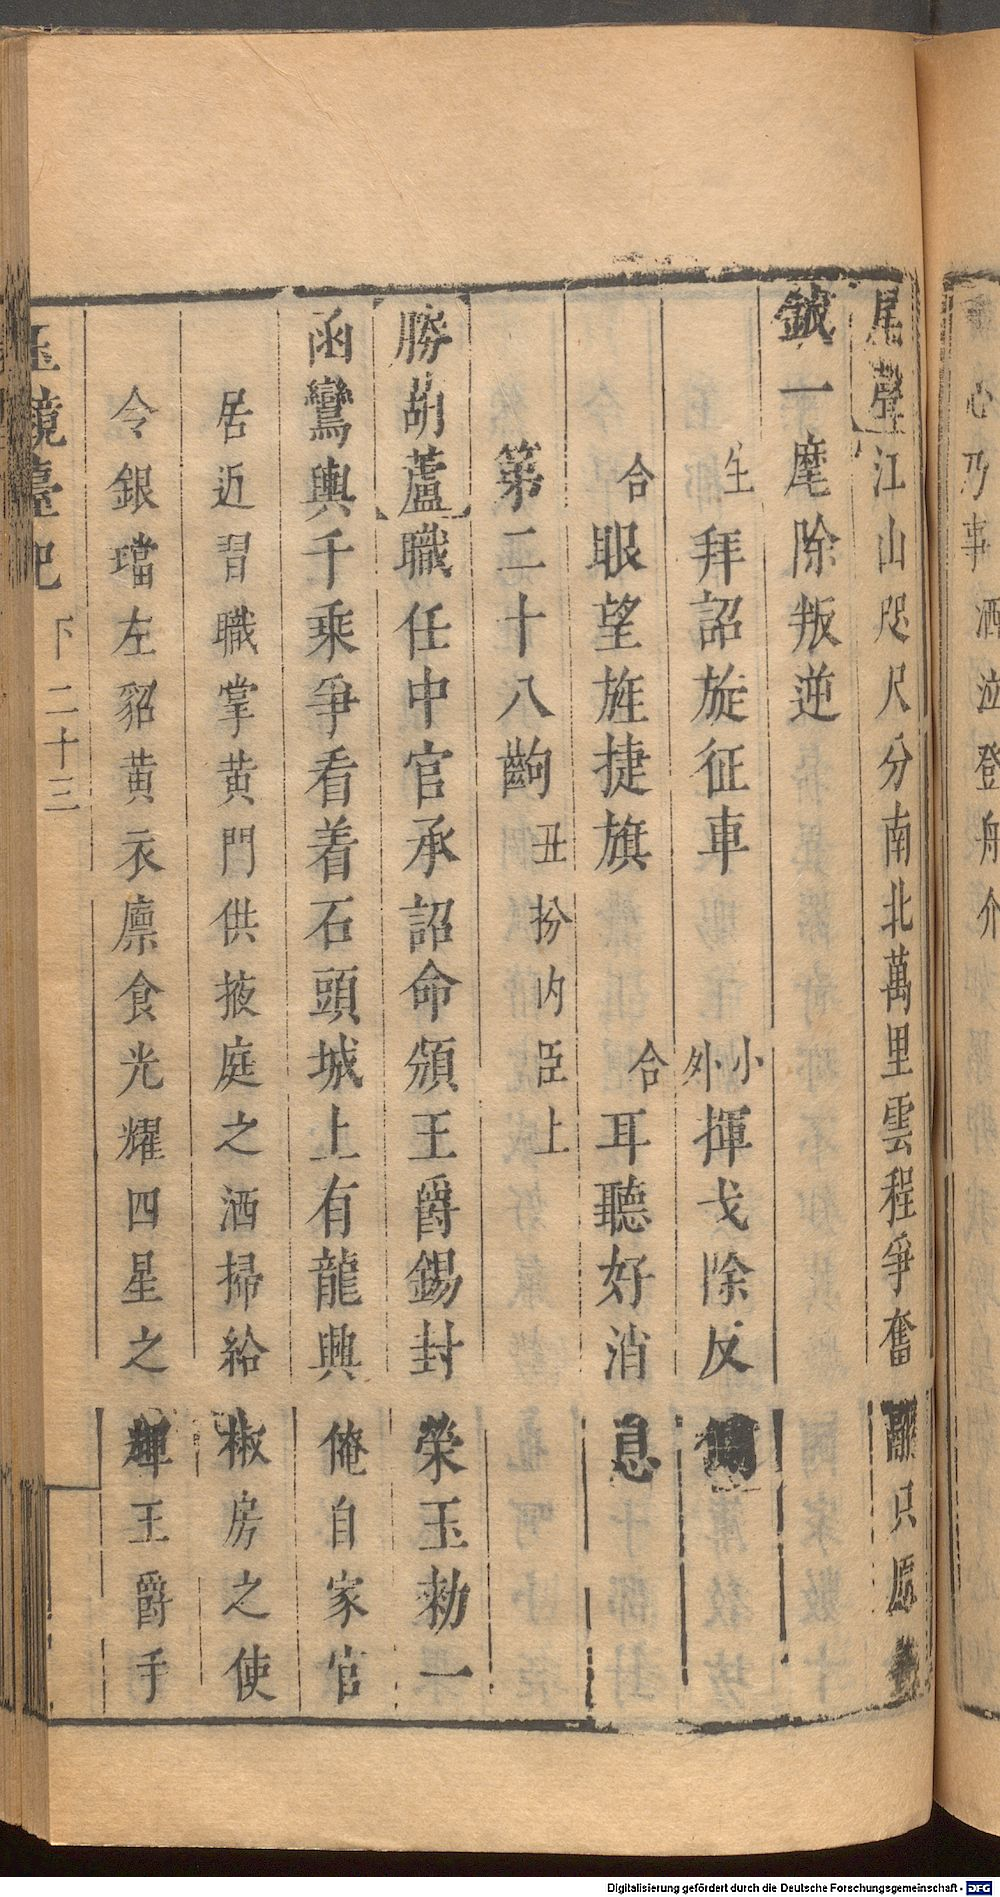 心乃事洒泣登舟介
尾聲江山咫尺分南北萬里雲程爭奮只
鉞一麾除叛逆
生拜詔旋征車 小外揮戈除反
合眼望旌捷旗 合耳聽好消息
第二十八齣 丑扮內臣上
勝葫蘆職任中官承詔命頒王爵錫封榮玉勑一
函鸞輿千乘爭看着石頭城上有龍興俺自家官
居近習職掌黃門供掖庭之洒掃給椒房之使
令銀璫左貂黃衣廪食光耀四星之輝王爵手
玉鏡臺記 下 二十三
Digitalisierung gefördert durch die Deutsche Forschungsgemeinschaft - DFG